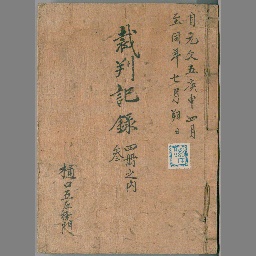 自元文五庚申四月
至同年七月朔日
裁判記録
四冊之内
叁
樋口五左衛門